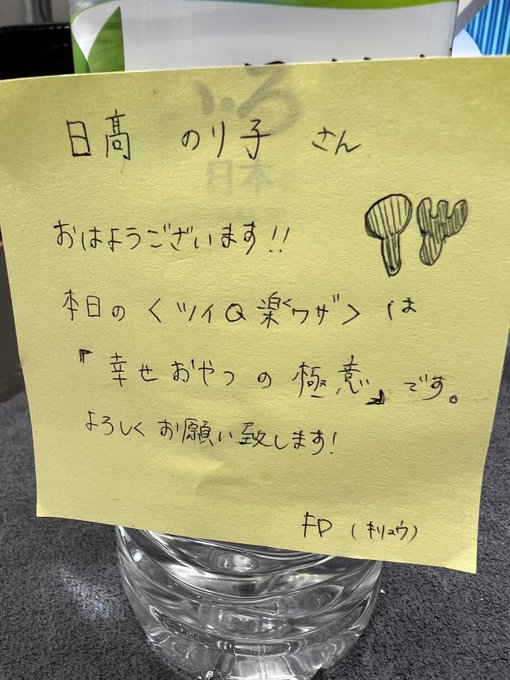 日髙 のり子 さん
おはようございます!!
本日の〈ツイQ楽ワザ〉は
『幸せおやつの極意』です。
よろしくお願い致します!
FD (キリュウ)
いろ
日本